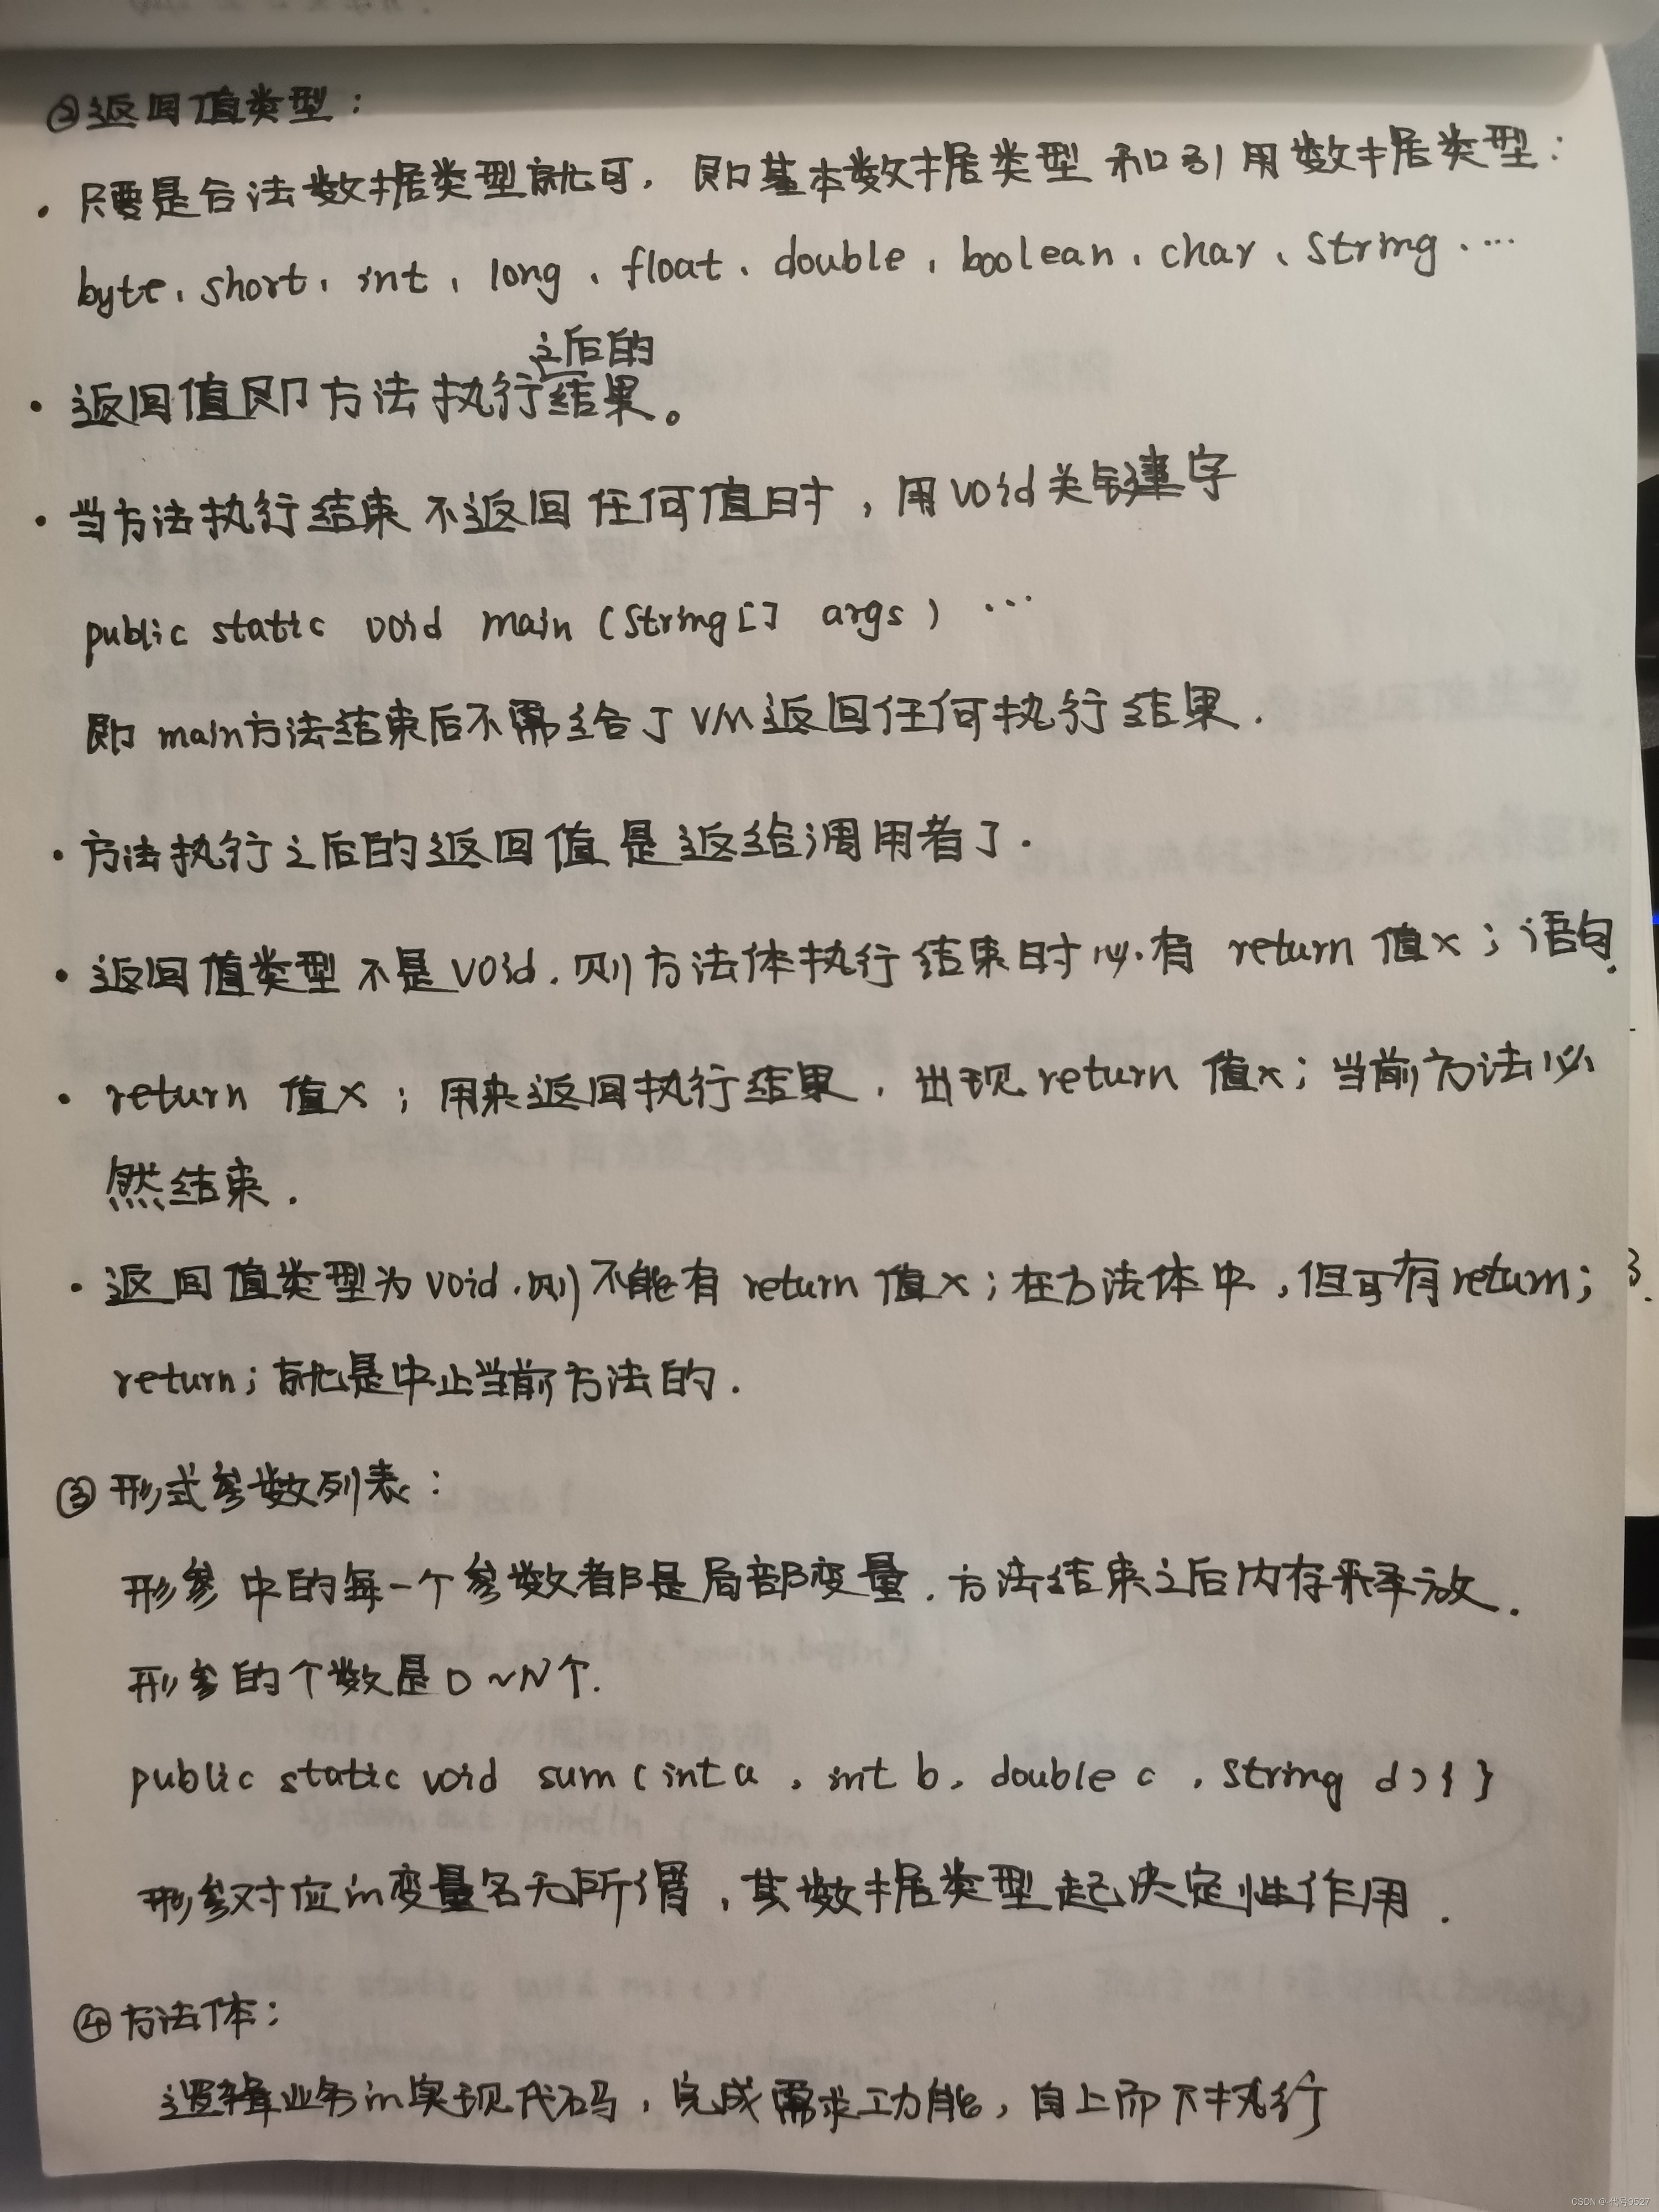 ②返回值类型：
· 只要是合法数据类型就可，即基本数据类型和引用数据类型：
byte、short、int、long、float、double、boolean、char、String、…
之后的
· 返回值即方法执行结果。
· 当方法执行结束不返回任何值时，用void关键字
public static void main (String[] args) …
即main方法结束后不需给JVM返回任何执行结果.
· 方法执行之后的返回值是返给调用者了.
· 返回值类型不是void，则方法体执行结束时必有 return 值x；语句.
· return 值x；用来返回执行结果，出现return 值x；当前方法必
然结束.
· 返回值类型为void，则不能有 return 值x；在方法体中，但可有return；
return；就是中止当前方法的.
③形式参数列表：
形参中的每一个参数都是局部变量，方法结束之后内存释放.
形参的个数是0~N个.
public static void sum (int a, int b, double c, String d){ }
形参对应in变量名无所谓，其数据类型起决定性作用.
④方法体：
逻辑业务in实现代码，完成需求功能，自上而下执行
CSDN @代号9527